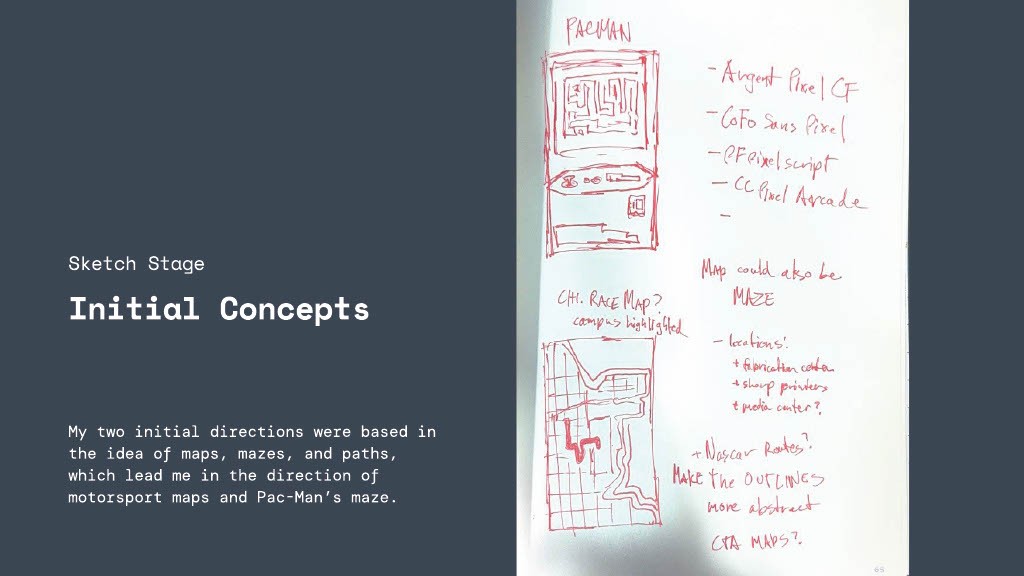 Sketch Stage
Initial Concepts
My two initial directions were based in
the idea of maps, mazes, and paths,
which lead me in the direction of
motorsport maps and Pac-Man’s maze.
PACMAN
- Argent Pixel CF
- CoFo Sans Pixel
- PF Pixelscript
- CC Pixel Arcade
-
Map could also be
MAZE
CHI. RACE MAP?
campus highlighted
- locations:
+ fabrication center
+ sharp printers
+ media center?
+ Nascar Routes?
MAKE the OUTLINES
more abstract
CTA MAPS?